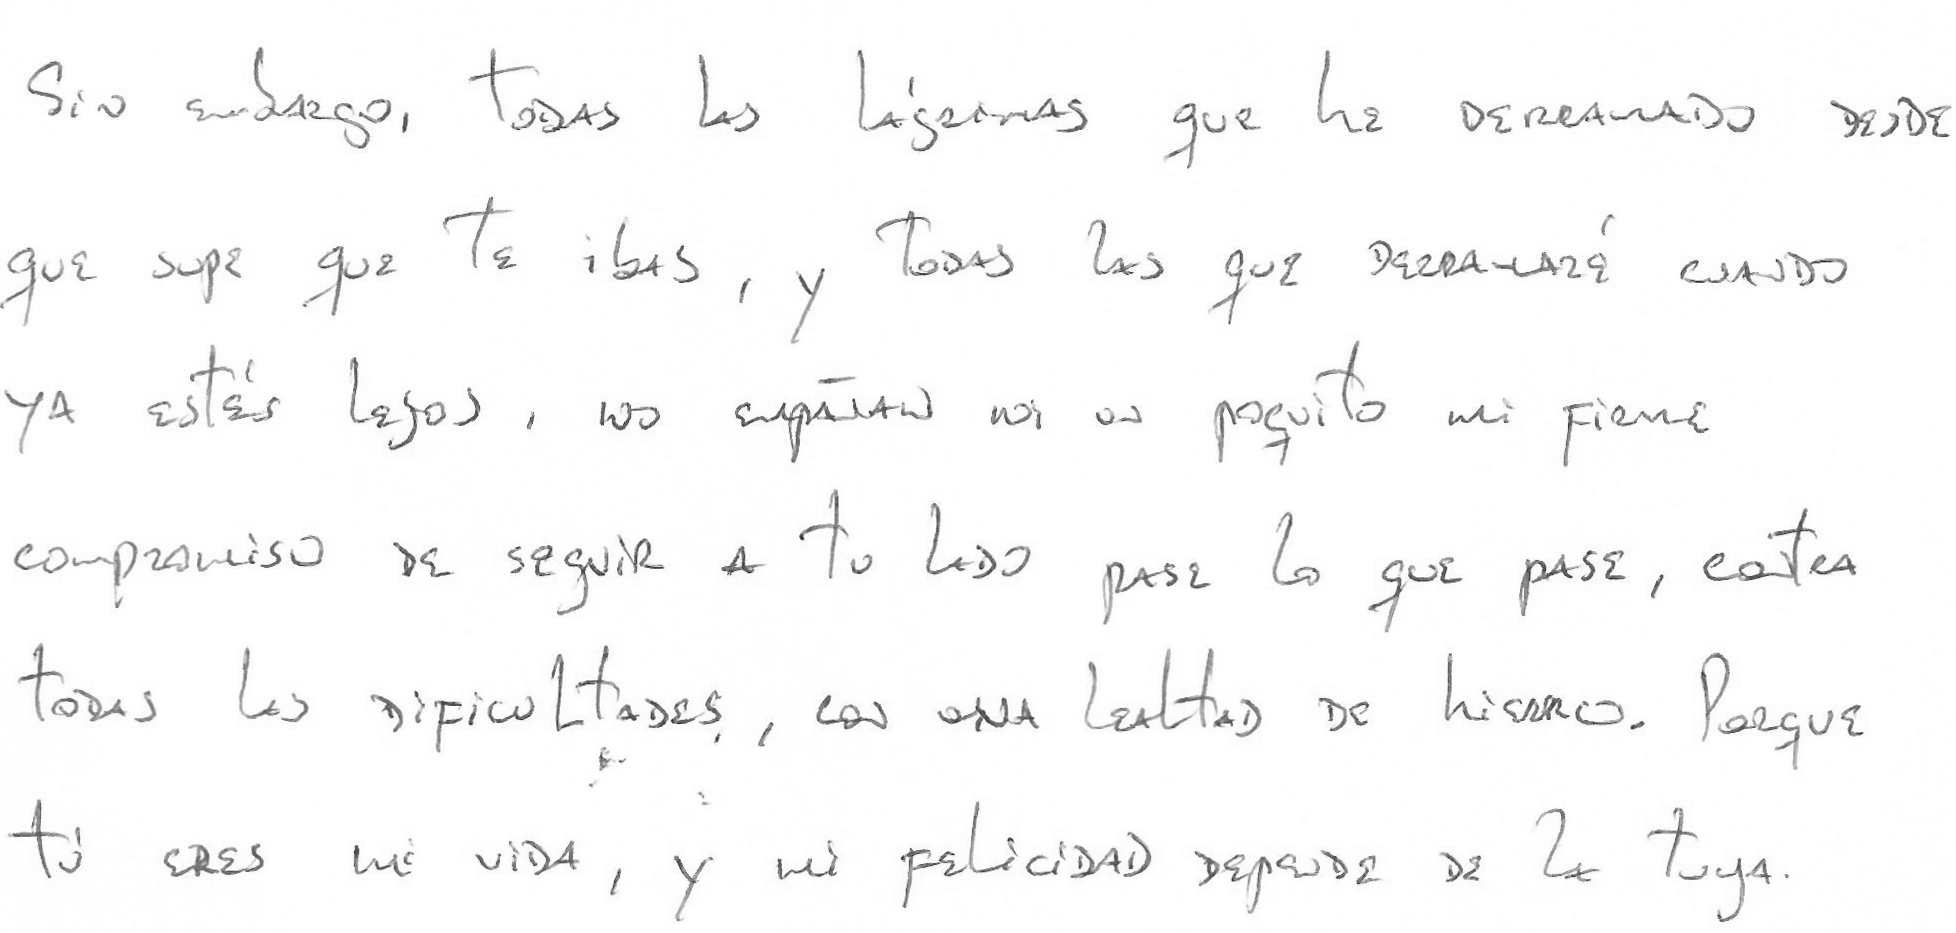 Sin embargo, todas las lágrimas que he derramado desde
que supe que te ibas, y todas las que derramaré cuando
ya estés lejos, no empañan ni un poquito mi firme
compromiso de seguir a tu lado pase lo que pase, contra
todas las dificultades, con una lealtad de hierro. Porque
tú eres mi vida, y mi felicidad depende de la tuya.